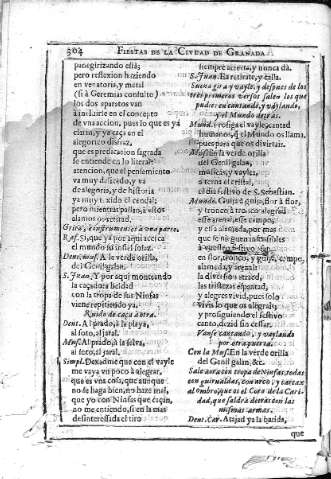 304 FIESTAS DE LA CIUDAD DE GRANADA
panegirizando ella;
pero reflexion haziendo
en veratorio, y metal
(si à Geremias consulte)
los dos aparatos van
à incluirse en el concepto
de vna accion, pues lo que es ya
claro, y ya cae en el
alegorico disfraz,
que es predicacion sagrada
se entiende en lo literal:
atencion, que el pensamiento
va muy de sucedo, y va
de alegorio, y de historia
ya muy t. xido el caudal;
pero mientras passan, à ellos
alamos os retirad,
Grita, è instrumentos à vna parte.
Raf. Si, que ya por aqui acerca
el mundo su infiel solaz.
Dent. musi. A la verde orilla,
del Genilgalan.
S. Juan. Y por aqui monteando
la caçadora beldad
con la tropa de sus Ninfas
viene repitiendo ya.
Ruido de caça à otra.
Dent. Al prado, à la playa,
al soto, al jaral.
Musi. Al prado, à la selva,
al soto, al jaral.
Simpl. Dexadme que con el vayle
me vaya vn poco à alegrar,
que es vna cosa, que aunque
no se haga bien, no haze mal,
que yo con Ninfas que caçan,
no me entiendo, si en la mas
desinteressada el tiro
siempre acierta, y nunca dà.
S. Juan. Ea retirate, y calla.
Suena grita y vayle, y despues de los
tres primeros versos salen los que
pudieren cantando, y vaylando,
y el Mundo detràs.
Mund. Prosiga el vayle, cantad
humanos, q̃ el Mundo os llama,
pues para que os divirtais.
Musi. En la verde orilla
del Genilgalan,
musicas, y vayles,
a tema el cristal,
el dia festivo de S. Sebastian.
Mundo. Guirà à guijo, flor à flor,
y tronco à tronco alegrad
esse ameno, esse campo,
y essa alameda, por mas
que se nieguen insensibles
à vuestro festivo afan,
en flor, tronco, y guijo, campo,
alameda, y arenal:
la diversion atraed,
las tristezas espantad,
y alegres vivid, pues solo
vivis lo que os alegrais;
y prosiguiendo el festivo
canto, dezid sin cessar.
Vanse cantando, y vaylando
por otra puerta.
Con la Musi. En la verde orilla
del Genil galan, &c.
Sale aora con tropa de Ninfas, todas
con guirnaldas, con arco, y carcax
al ombro, que es el Coro de la Cari-
dad, que saldrà detràs con las
mismas armas.
Dent. Car. Atajad ya la batida,
que